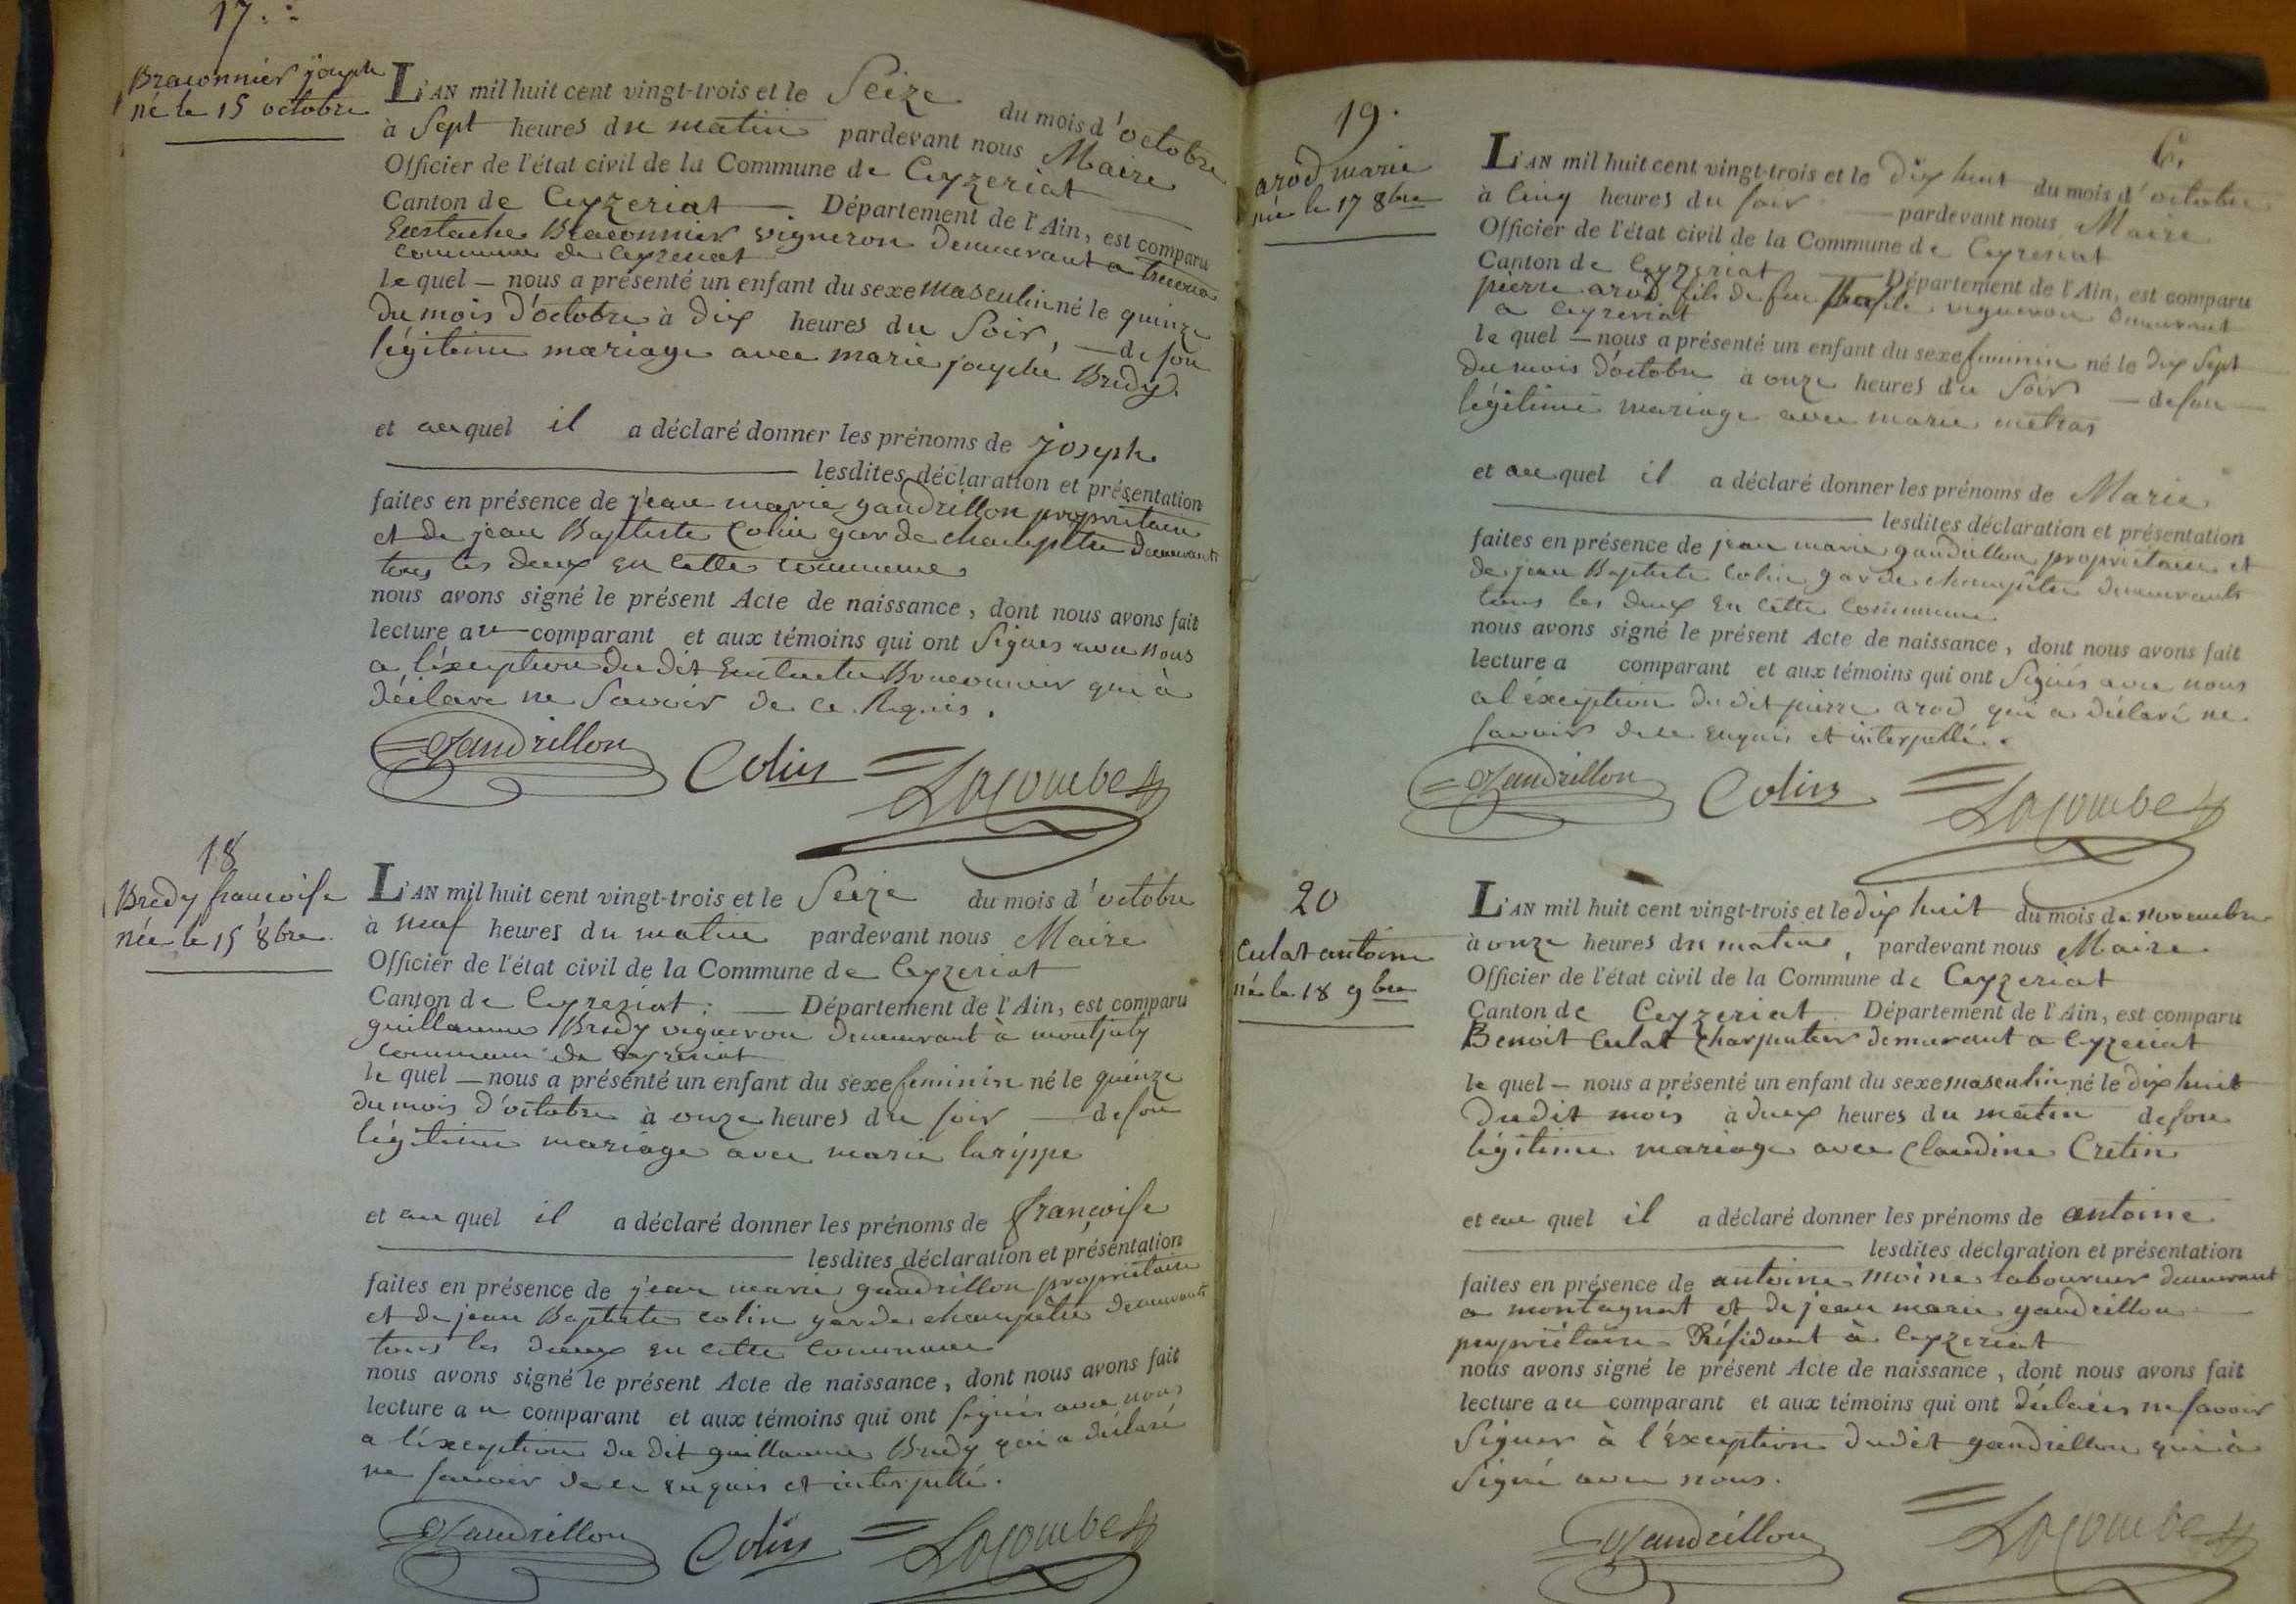 17.
Braconnier joseph
né le 15 octobre
L'AN mil huit cent vingt-trois et le Seize du mois d'octobre
à Sept heures du matin pardevant nous Maire
Officier de l'état civil de la Commune de Ceyzeriat
Canton de Ceyzeriat Département de l'Ain, est comparu
Eustache Braconnier vigneron demeurant a
commune de Ceyzeriat
le quel – nous a présenté un enfant du sexe masculin né le quinze
du mois d'octobre à dix heures du Soir, — de son
légitime mariage avec marie josephe Bredy.
et au quel il a déclaré donner les prénoms de joseph
lesdites déclaration et présentation
faites en présence de jean marie gaudrillon propriétaire
et de jean Baptiste Colin garde champêtre demeurants
tous les deux en cette commune
nous avons signé le présent Acte de naissance, dont nous avons fait
lecture au comparant et aux témoins qui ont Signés avec nous
a l'éxception du dit Eustache Braconnier qui à
déclare ne Savoir de ce Requis.
Gaudrillon Colin Lacombe
18
Bredy francoise
née le 15 8bre
L'AN mil huit cent vingt-trois et le Seize du mois d'octobre
à neuf heures du matin pardevant nous Maire
Officier de l'état civil de la Commune de Ceyzeriat
Canton de Ceyzeriat; — Département de l'Ain, est comparu
guillaume Bredy vigneron demeurant à montjuly
commune de Ceyzeriat
le quel — nous a présenté un enfant du sexe feminin né le quinze
du mois d'octobre à onze heures du soir — de son
légitime mariage avec marie larippe
et au quel il a déclaré donner les prénoms de françoise
lesdites déclaration et présentation
faites en présence de jean marie gaudrillon propriétaire
et de jean Baptiste colin garde champêtre demeurants
tous les deux en cette commune
nous avons signé le présent Acte de naissance, dont nous avons fait
lecture au comparant et aux témoins qui ont signés avec nous
a l'éxception du dit guillaume Bredy qui a déclaré
ne savoir de ce enquis et interpellé.
Gaudrillon Colin Lacombe
6.
19.
arod marie
née le 17 8bre
L'AN mil huit cent vingt-trois et le dix huit du mois d'octobre
à Cinq heures du soir — pardevant nous Maire
Officier de l'état civil de la Commune de Ceyzeriat
Canton de Ceyzeriat — Département de l'Ain, est comparu
pierre arod fils de feu vigneron demeurant
a Ceyzeriat
le quel – nous a présenté un enfant du sexe feminin né le dix Sept
du mois d'octobre à onze heures du Soir — de son
légitime mariage avec marie metras
et au quel il a déclaré donner les prénoms de Marie
lesdites déclaration et présentation
faites en présence de jean marie gaudrillon propriétaire et
de jean Baptiste Colin garde champêtre demeurants
tous les deux en cette Commune
nous avons signé le présent Acte de naissance, dont nous avons fait
lecture a comparant et aux témoins qui ont Signés avec nous
a l'éxception du dit pierre arod qui a déclaré ne
savoir de ce enquis et interpellé.
Gaudrillon Colin Lacombe
20
Culat antoine
né le 18 9bre
L'AN mil huit cent vingt-trois et le dix huit du mois de novembre
à onze heures du matin, pardevant nous Maire
Officier de l'état civil de la Commune de Ceyzeriat
Canton de Ceyzeriat. Département de l'Ain, est comparu
Benoit Culat Charpentier demeurant a Ceyzeriat
le quel – nous a présenté un enfant du sexe masculin né le dix huit
dudit mois à deux heures du matin de son
légitime mariage avec Claudine Cretin
et au quel il a déclaré donner les prénoms de antoine
lesdites déclaration et présentation
faites en présence de antoine moine laboureur demeurant
a montagnat et de jean marie gaudrillon
propriétaire Résidant à Ceyzeriat
nous avons signé le présent Acte de naissance, dont nous avons fait
lecture au comparant et aux témoins qui ont déclarés ne savoir
Signer à l'éxception dudit gaudrillon qui à
Signé avec nous.
Gaudrillon Lacombe